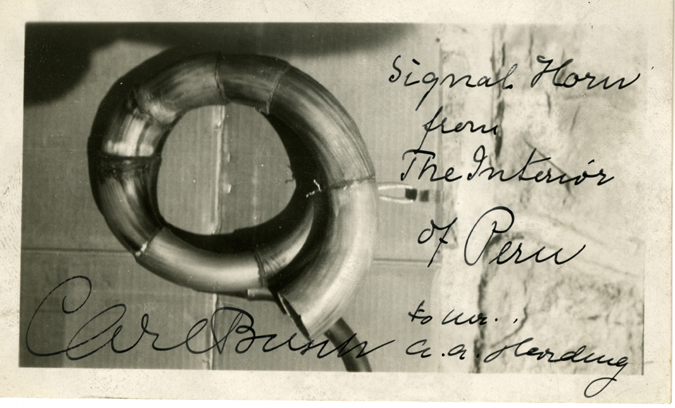 Signal Horn
from
The Interior
of Peru
to Mr.
A. A. Harding
Carl Busch